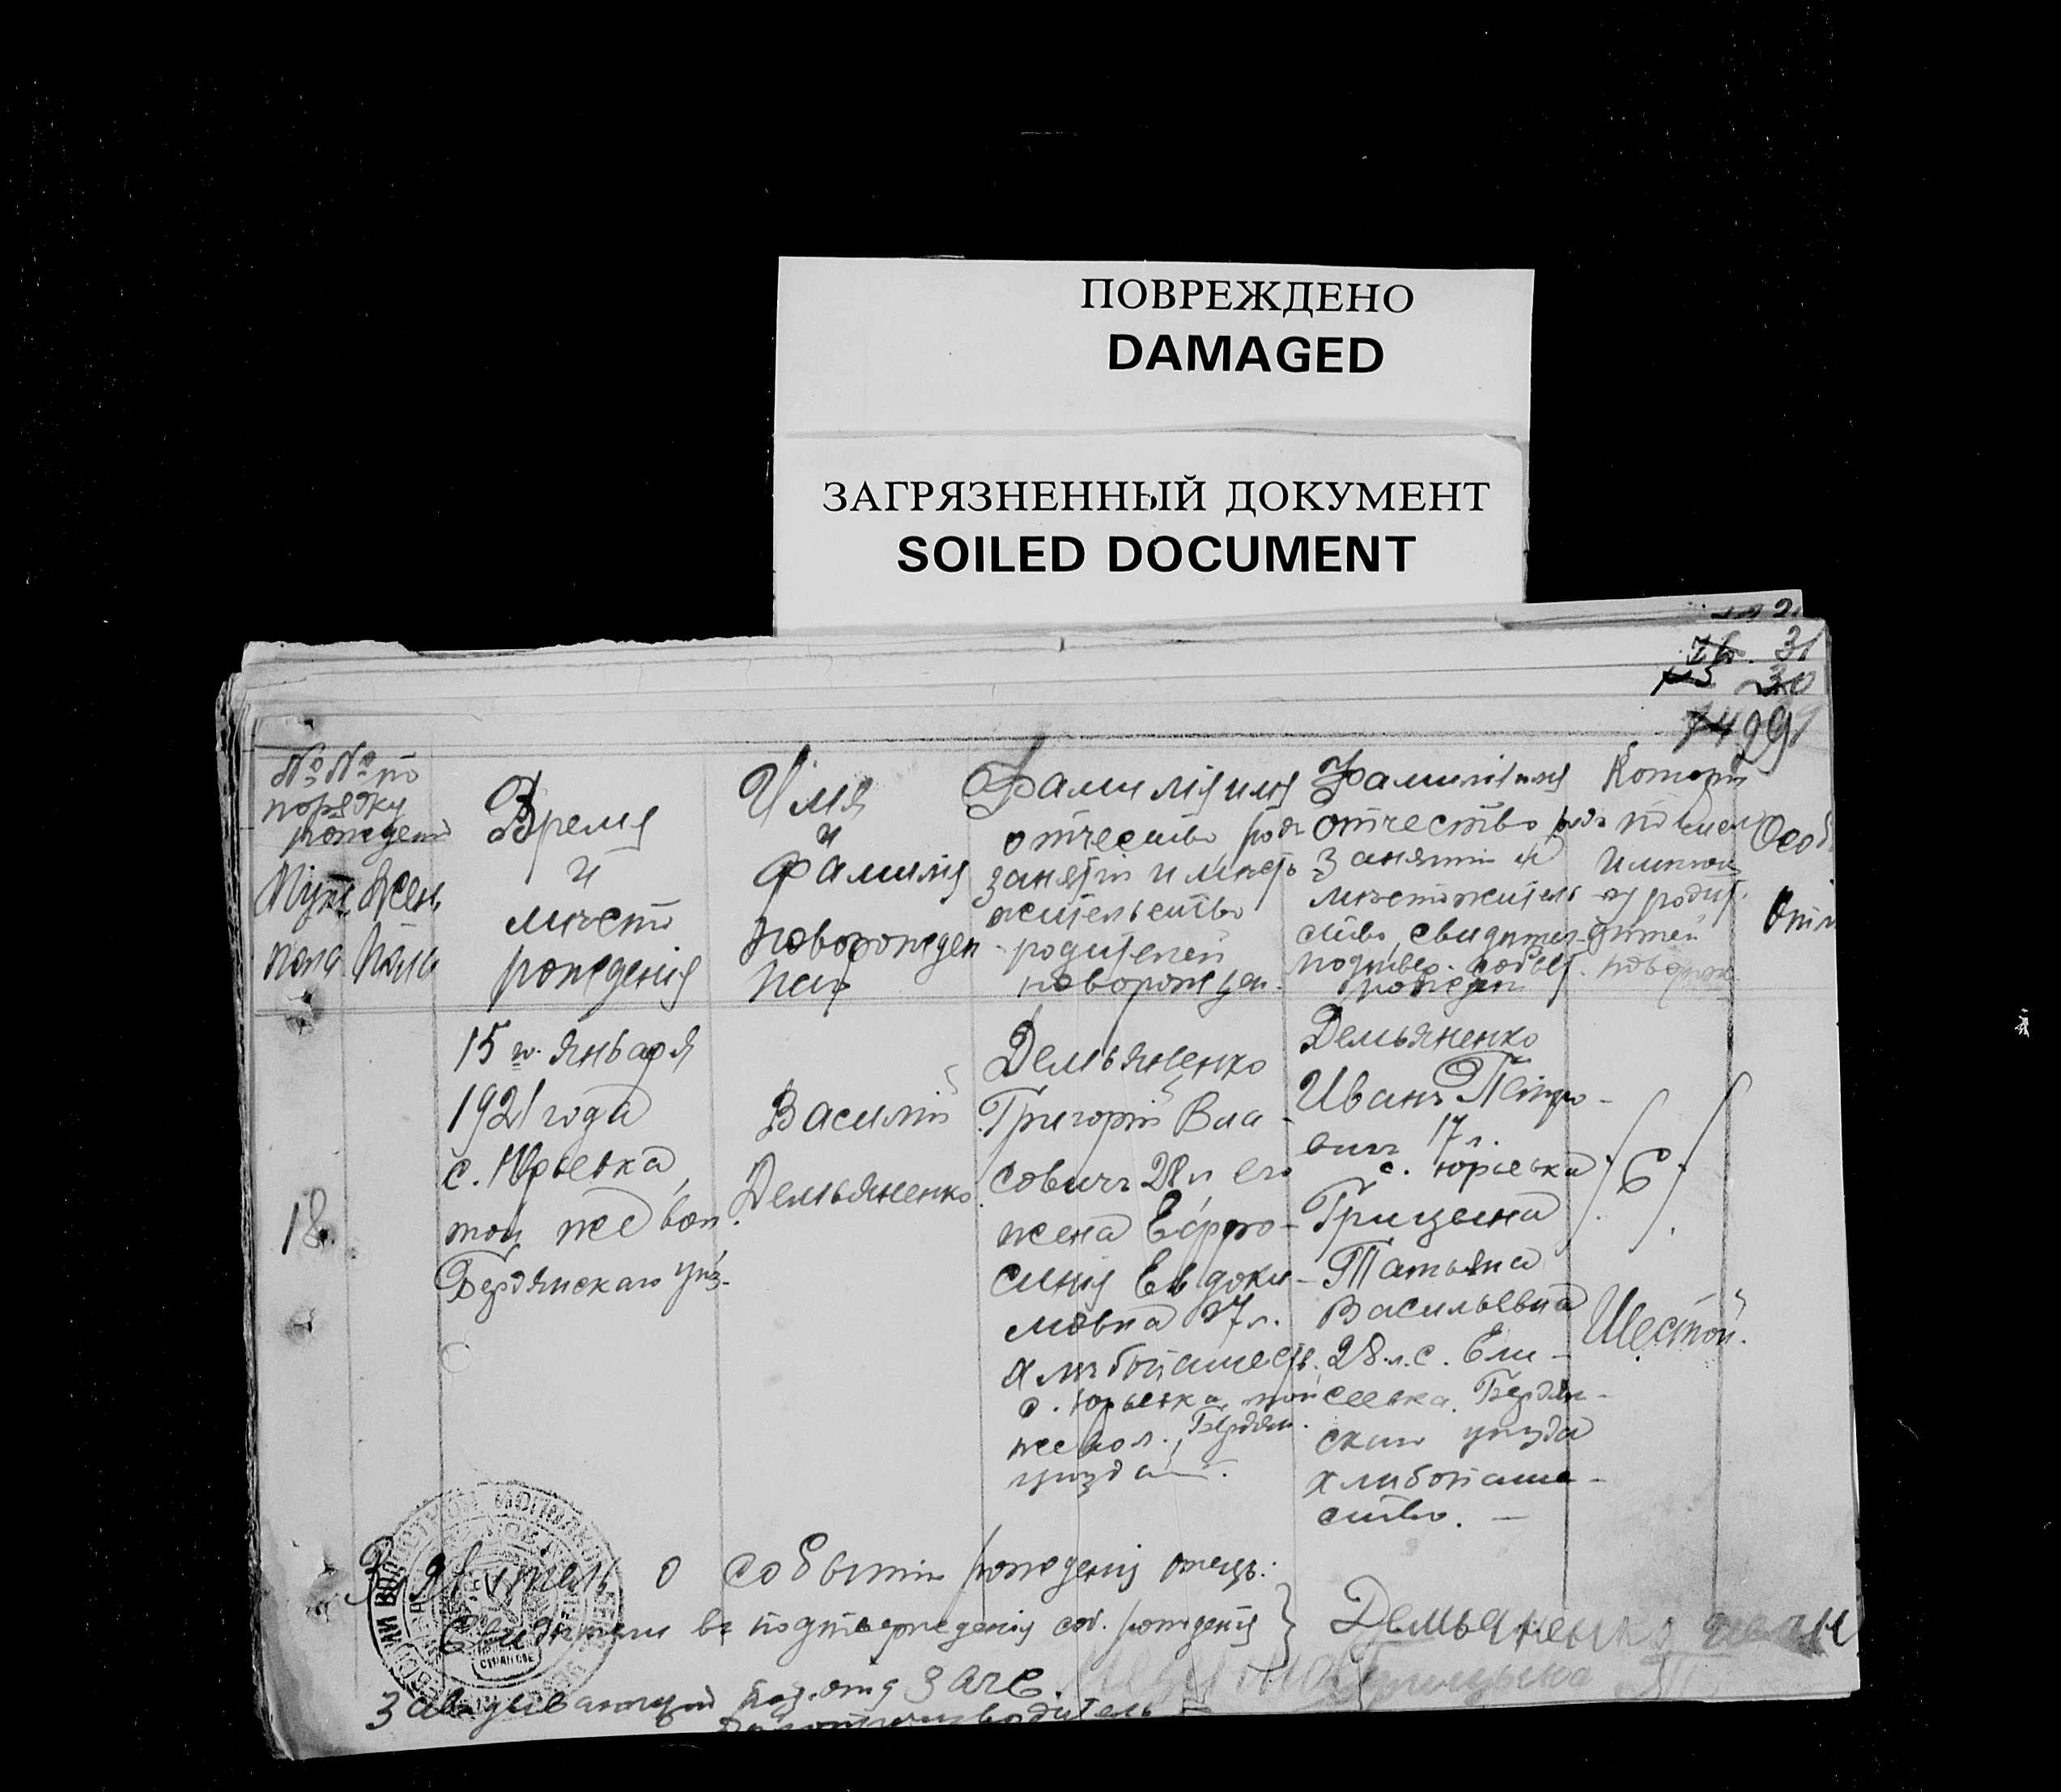 ПОВРЕЖДЕНО
DAMAGED
ЗАГРЯЗНЕННЫЙ ДОКУМЕНТ
SOILED DOCUMENT
31
30
№№ по
порядку
рожден
Муж. Жен.
пола пола
Время
и
место
рожденія
Имя
и
фамилія
новорожден
наго
Фамилія имя
отчество родъ
занятій и место
жительство
родителей
новорожден.
Фамилія имя
отчество родъ
занятій и
местожитель
ство, свидетел.
подтверд. событ.
рожден
Который
по числу
имеющ
у родит.
детей
новорож
Особ
Отм
18.
15 го января
1921 года
с. Юрьевка,
той же вол.
Бердянскаго уез.
Василій
Демьяненко
Демьяненко
Григорій Вла-
совичъ 28 л его
жена Ефро-
синія Евдоки-
мовна 27 л.
хлебопашеств.
с. Юрьевка, той
же вол., Бердян.
уезда.
Демьяненко
Иванъ Петро-
вичъ 17 л.
с. Юрьевка
Грицына
Татьяна
Васильевна
28 л. с. Ели-
сеевка. Бердян-
скаго уезда
хлибопаше-
ство.
/6/
Шестой.
Заявитель о событіи рожденія отецъ:
Свидетели въ подтвержденія соб. рожденія } Демьяненко
Грицына
Заведывающій под. отд ЗАГС.
Делопроизводитель